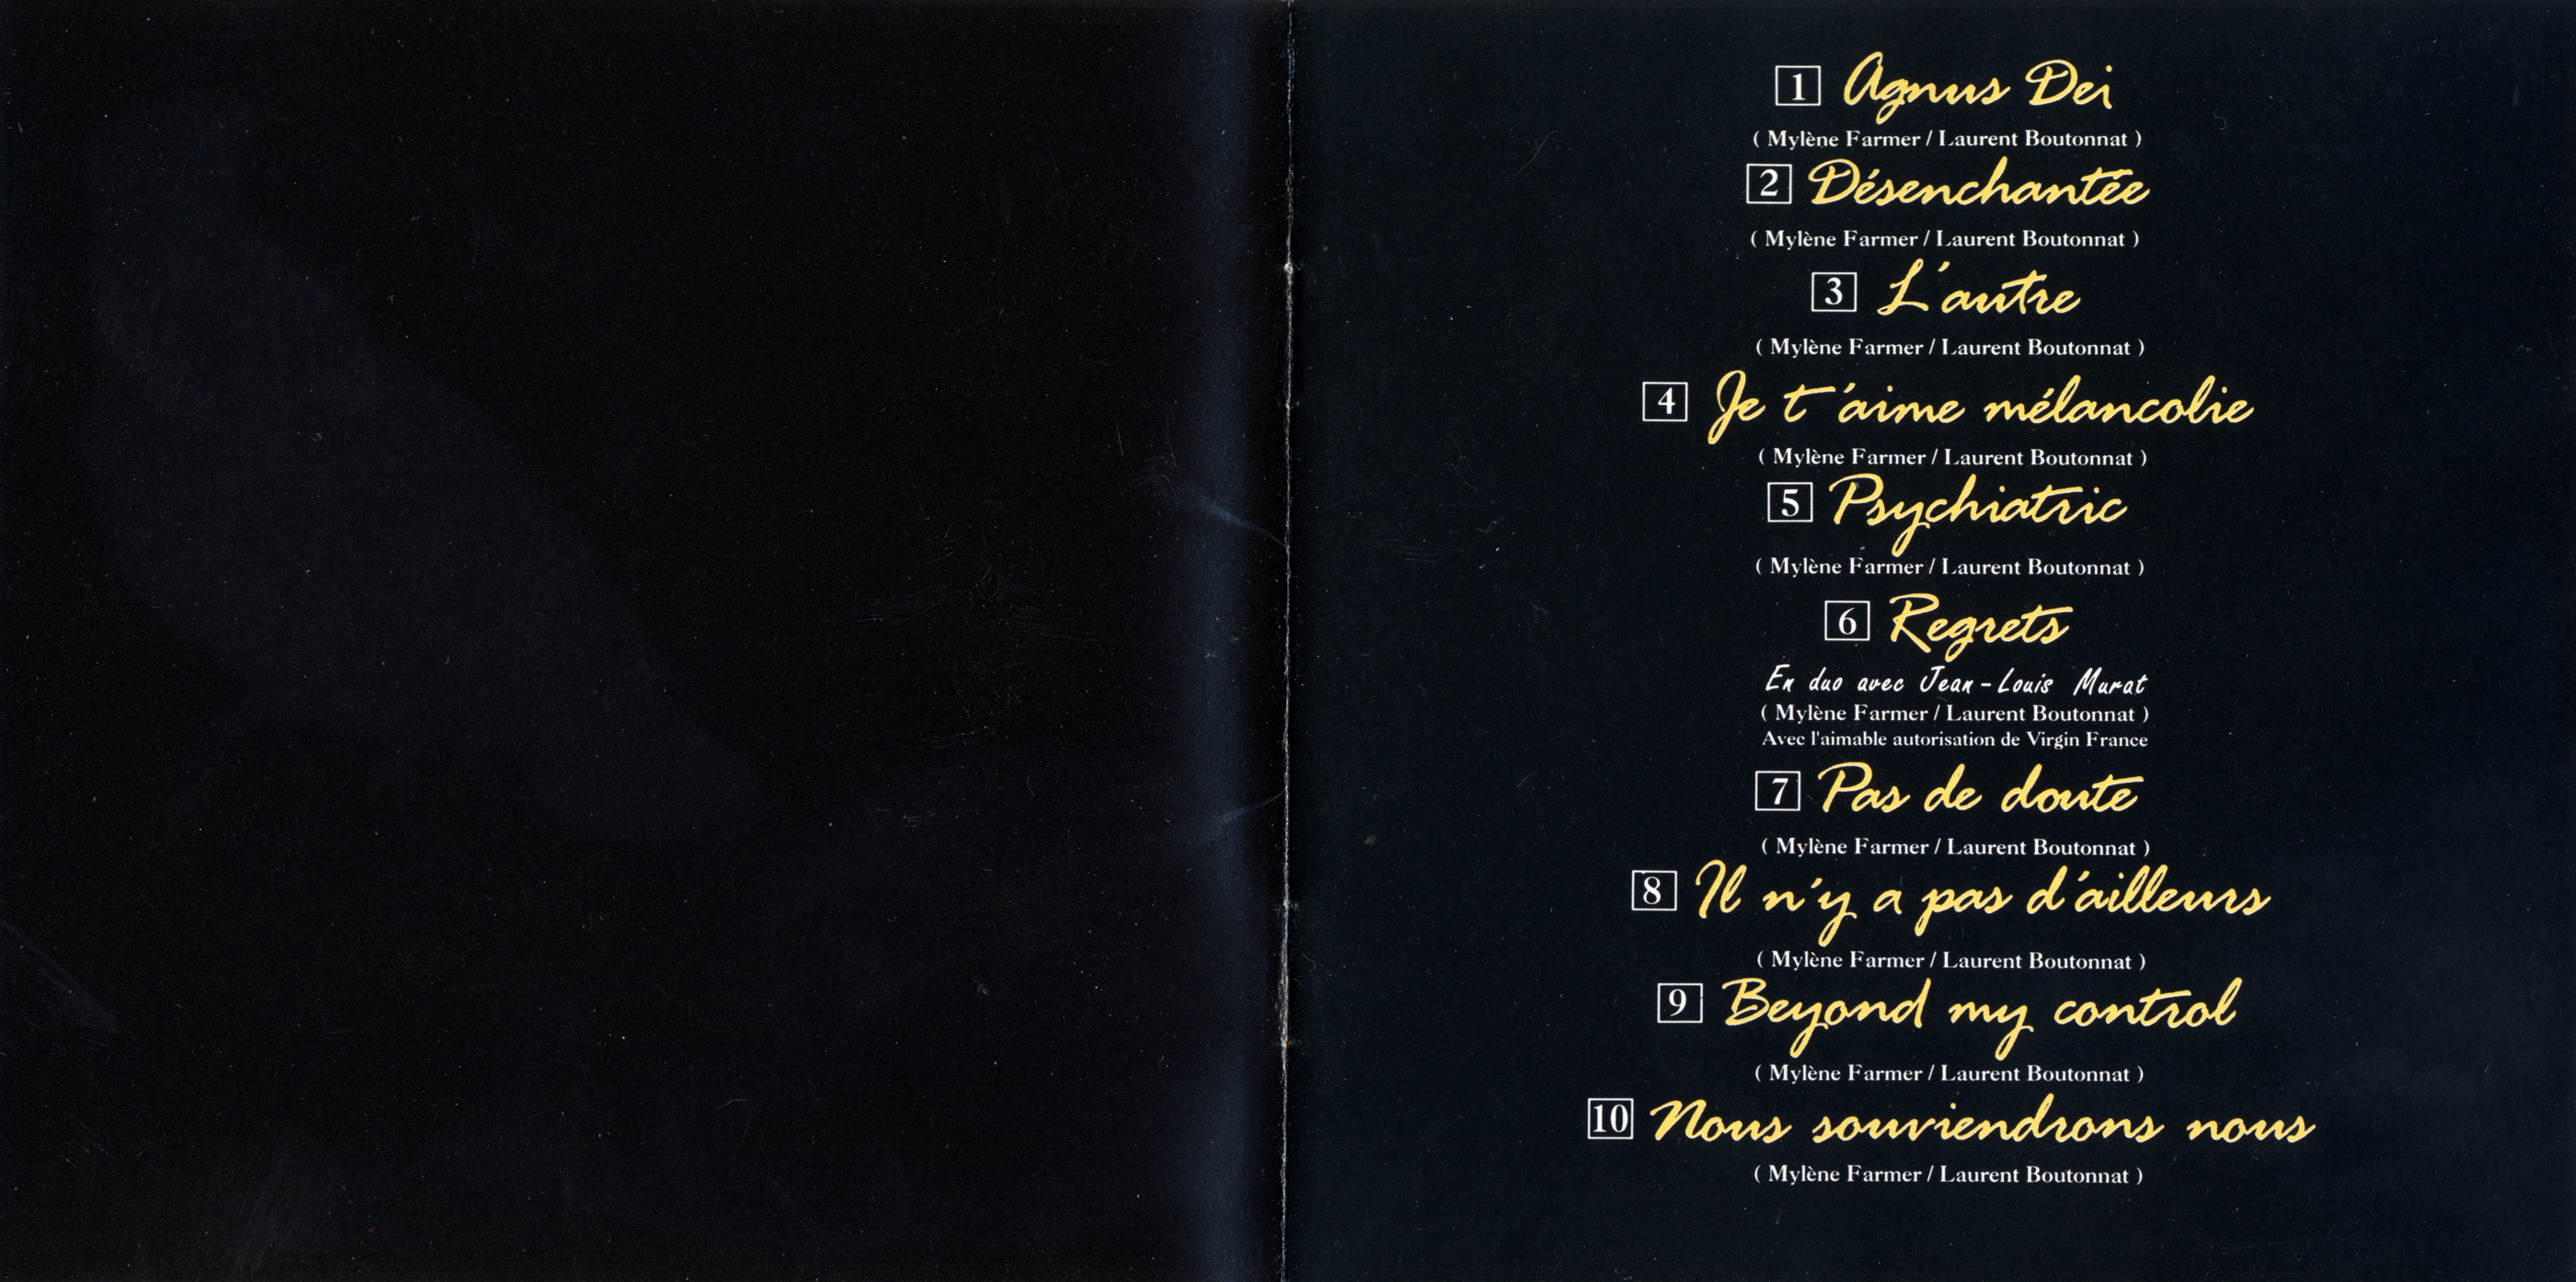 1 Agnus Dei
( Mylène Farmer / Laurent Boutonnat )
2 Désenchantée
( Mylène Farmer / Laurent Boutonnat )
3 L'autre
( Mylène Farmer / Laurent Boutonnat )
4 Je t'aime mélancolie
( Mylène Farmer / Laurent Boutonnat )
5 Psychiatric
( Mylène Farmer / Laurent Boutonnat )
6 Regrets
En duo avec Jean-Louis Murat
( Mylène Farmer / Laurent Boutonnat )
Avec l'aimable autorisation de Virgin France
7 Pas de doute
( Mylène Farmer / Laurent Boutonnat )
8 Il n'y a pas d'ailleurs
( Mylène Farmer / Laurent Boutonnat )
9 Beyond my control
( Mylène Farmer / Laurent Boutonnat )
10 Nous souviendrons nous
( Mylène Farmer / Laurent Boutonnat )